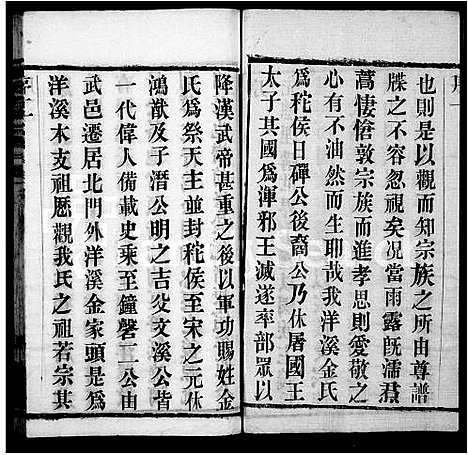 也則是以觀而知宗族之所由尊譜
牒之不容忽視矣况當雨露旣濡焄
蒿悽愴敦宗族而進孝思則愛敬之
心有不油然而生耶哉我洋溪金氏
爲秺侯日磾公後裔公乃休屠國王
太子其國爲渾邪王滅遂率部眾以
降漢武帝甚重之後以軍功賜姓金
氏爲祭天主並封秺侯至宋之元休
鴻猷及子潛公明之吉父文溪公皆
一代偉人備載史乘至鐘磬二公由
武邑遷居北門外洋溪金家頭是爲
洋溪本支祖歷觀我氏之祖若宗其